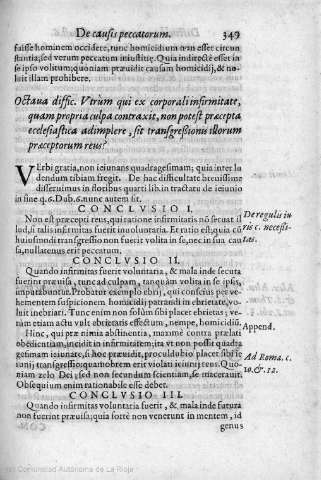 De causis peccatorum. 349
fuisse hominem occidere, tunc homicidium non esset circun
stantia, sed verum peccatum iniustitię. Quia indirectè esset in
se ipso volitum; quoniam præuidit causam homicidij, & no-
luit illam prohibere.
Octaua diffic. Vtrum qui ex corporali infirmitate,
quam propria culpa contraxit, non potest præcepta
ecclesiastica adimplere, sit transgressionis illorum
præceptorum reus?
VErbi gratia, non ieiunans quadragesimam; quia inter lu
dendum tibiam fregit. De hac difficultate breuissime
disseruimus in floribus quarti lib. in tractatu de ieiunio
in fine q. 6. Dub. 6. nunc autem sit.
CONCLVSIO I.
Non est præcepti reus, qui ratione infirmitatis nõ seruat il
lud, si talis infirmitas fuerit inuoluntaria. Et ratio est; quia cũ
huiusmodi transgressio non fuerit volita in se, nec in sua cau
sa, nullatenus erit peccatum.
De regulis in
ris c. necessi-
tas.
CONCLVSIO II.
Quando infirmitas fuerit voluntaria, & mala inde secuta
fuerint præuisa, tunc ad culpam, tanquam volita in se ipsis,
imputabuntur. Probatur exemplo ebrij, qui conscius per ve-
hementem suspicionem homicidij patrandi in ebrietate, vo-
luit inebriari. Tunc enim non solùm sibi placet ebrietas; ve-
rùm etiam actu vult ebrietatis effectum, nempe, homicidiũ.
Append.
Hinc, qui præ nimia abstinentia, maximè contra prælati
obedientiam, incidit in infirmitatem; ita vt non possit quadra
gesimam ieiunare, si hoc præuidit, proculdubio placet sibi ie
iunij transgressio: quamobrem erit violati ieiunij reus. Quo-
niam zelo Dei, sed non secundum scientiam, se macerauit.
Obsequium enim rationabile esse debet.
Ad Roma. c.
10. & 12.
CONCLVSIO III.
Quando infirmitas voluntaria fuerit, & mala inde futura
non fuerint præuisa; quia fortè non venerunt in mentem, id
genus
Comunidad Autónoma de La Rioja